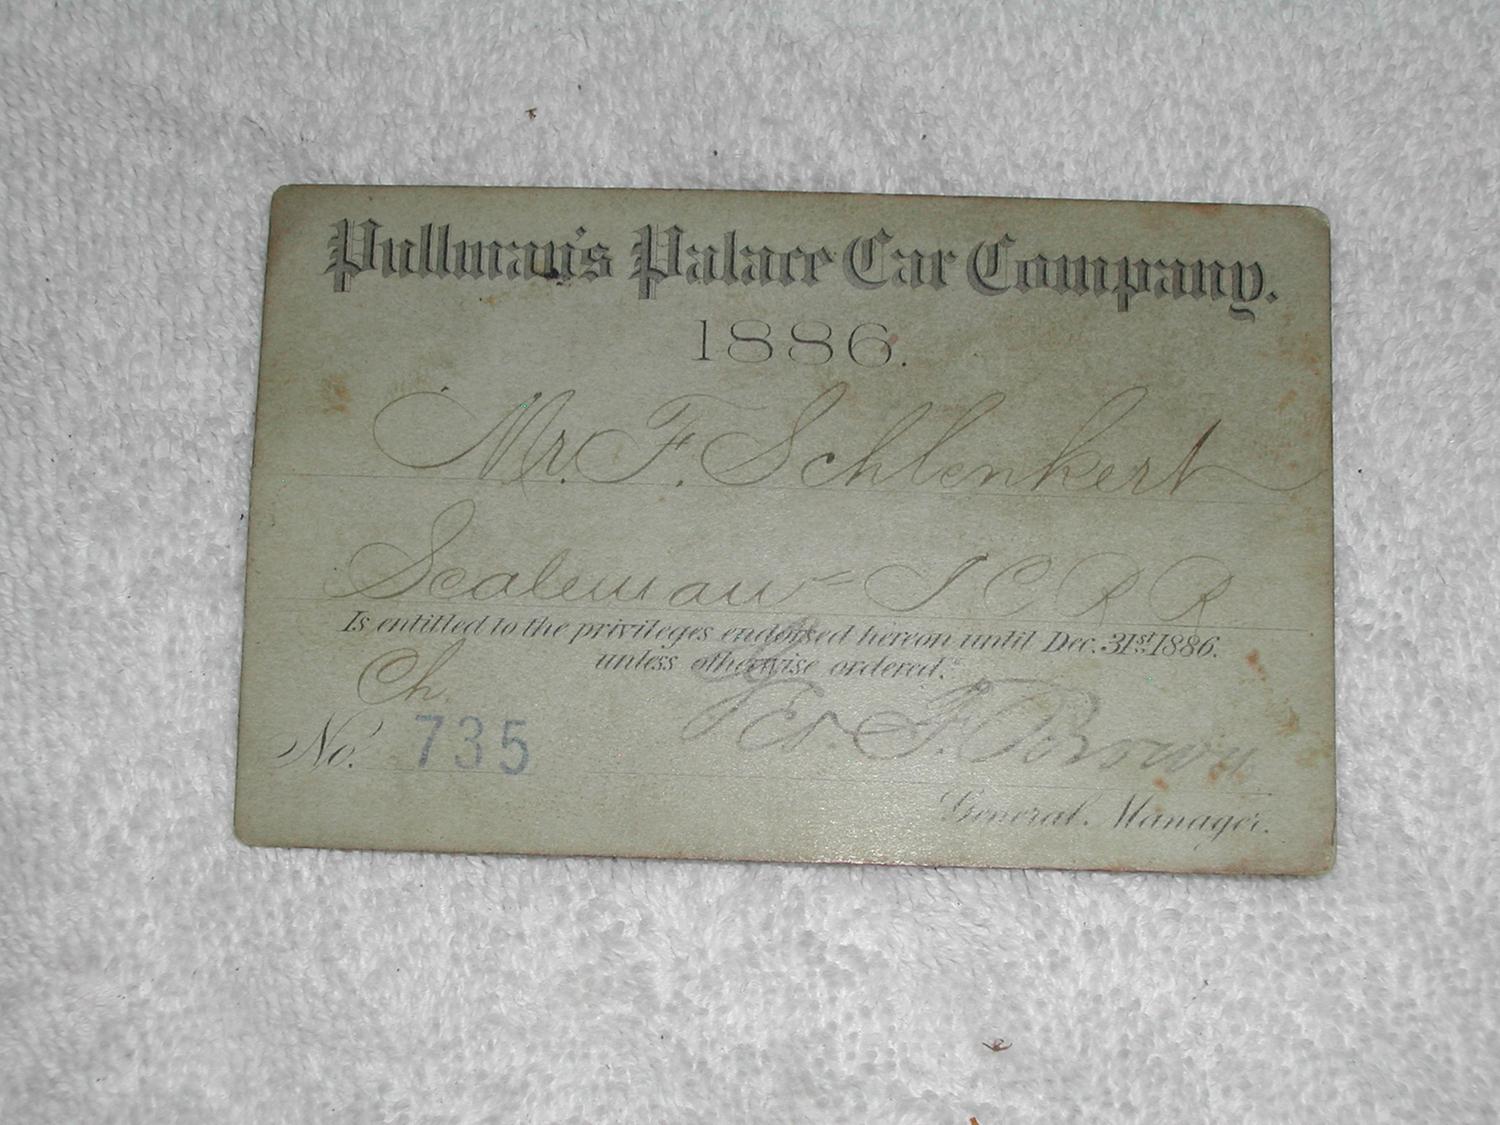 Pullman's Palace Car Company.
1886.
Mr. F. Schlenkert
Scaleman - I C R R
Is entitled to the privileges endorsed hereon until Dec. 31st 1886.
unless otherwise ordered.
Ch.
No. 735
Geo. F. Brown
General Manager.